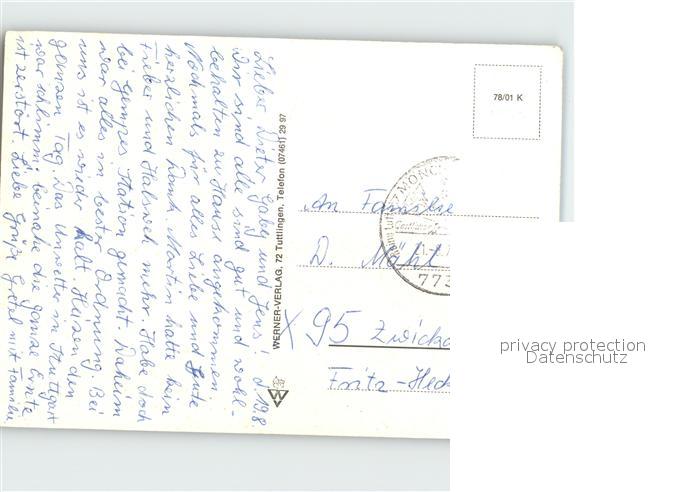 Lieber Dieter, Gaby und Jens! d. 19.8.
Wir sind alle sind gut und wohl-
behalten zu Hause angekommen.
Nochmals für alles Liebe und Gute
herzlichen Dank. Martin hatte kein
Fieber und Halsweh mehr. Habe doch
bei Station gemacht. Daheim
war alles in bester Ordnung. Bei
uns ist es wieder kalt Heizen den
ganzen Tag. Das Unwetter in Stuttgart
war schlimm, beinahe die ganze Ernte
ist zerstört. Liebe Grüße Gretel mit Familie
WERNER-VERLAG, 72 Tuttlingen, Telefon (07461) 29 97
78/01 K
MÖNC
773
An Familie
D. Mähl
X 95 Zwicka
Fritz-Heck
privacy protection
Datenschutz